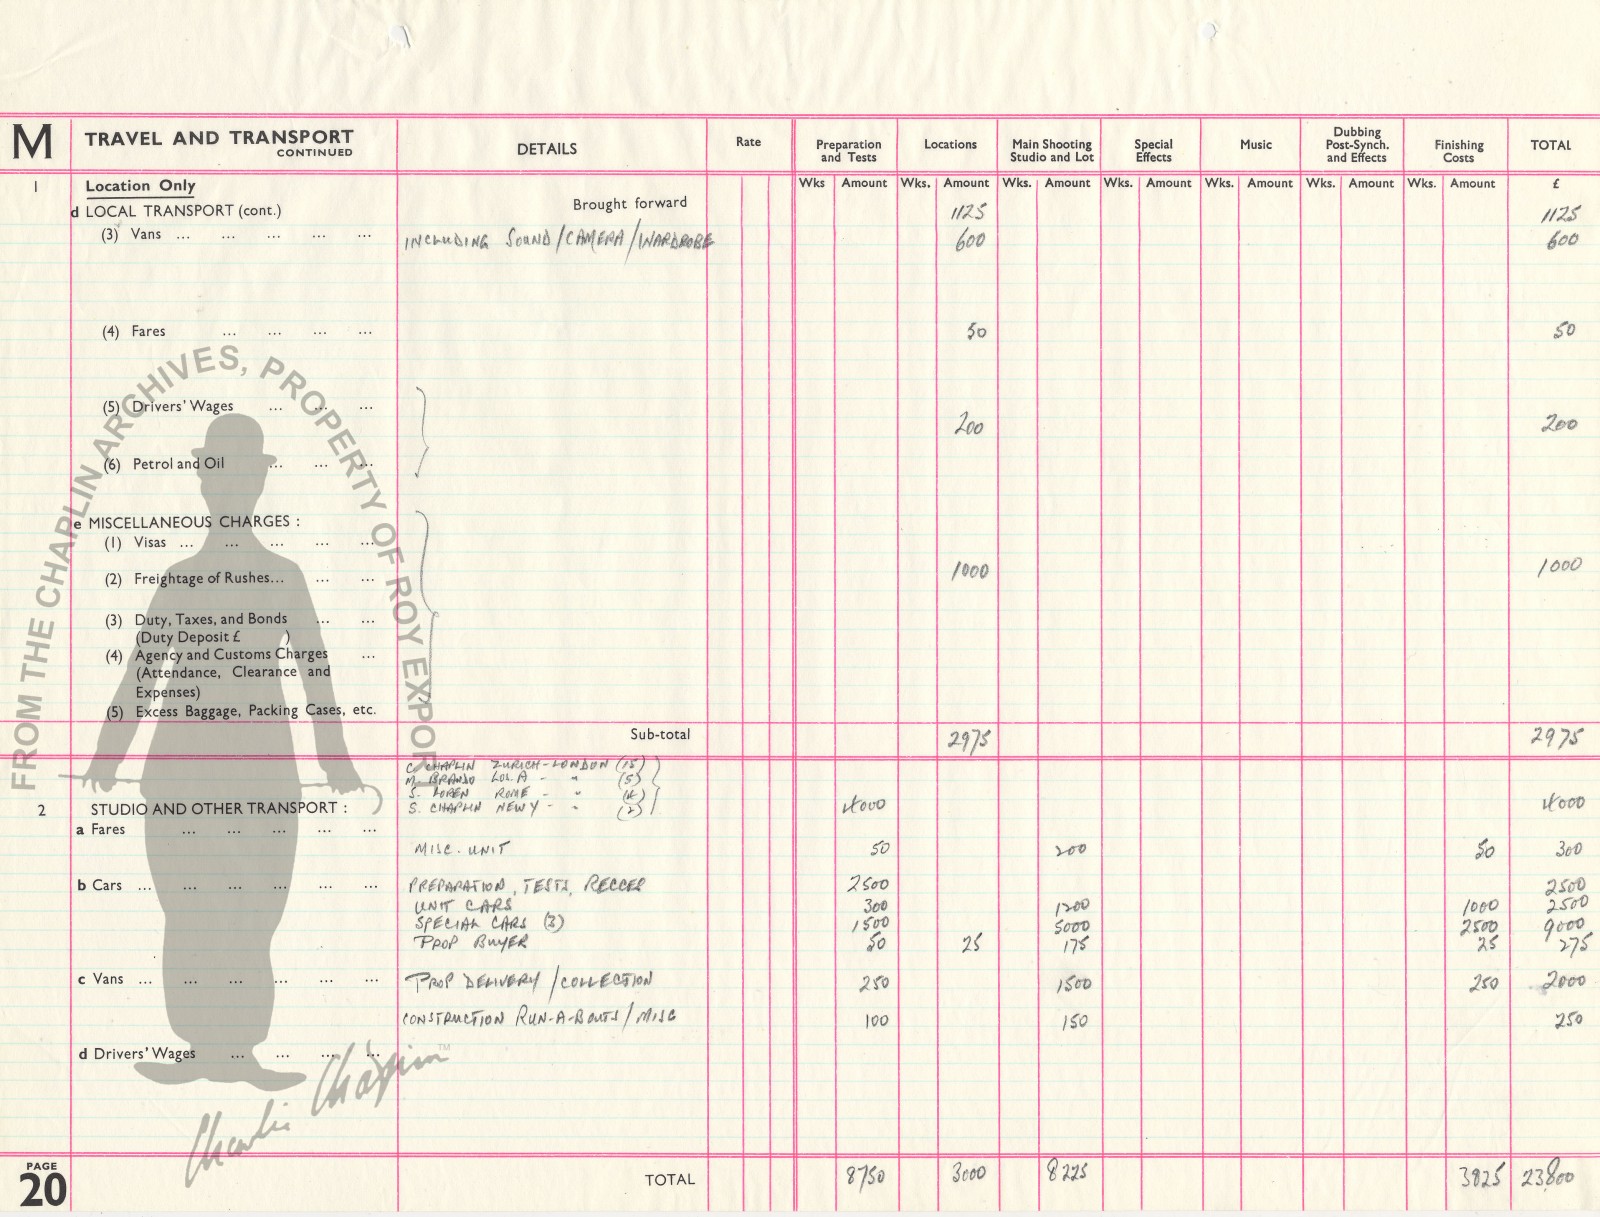 M TRAVEL AND TRANSPORT CONTINUED DETAILS Rate Preparation and Tests Locations Main Shooting Studio and Lot Special Effects Music Dubbing Post-Synch. and Effects Finishing Costs TOTAL
Wks Amount Wks. Amount Wks. Amount Wks. Amount Wks. Amount Wks. Amount Wks. Amount £
1 Location Only
d LOCAL TRANSPORT (cont.) Brought forward 1125 1125
(3) Vans ... ... ... ... ... INCLUDING SOUND/CAMERA/WARDROBE 600 600
(4) Fares ... ... ... ... 50 50
(5) Drivers' Wages ... ... ...
200 200
(6) Petrol and Oil ... ... ...
e MISCELLANEOUS CHARGES :
(1) Visas ... ... ... ... ...
(2) Freightage of Rushes... ... ... 1000 1000
(3) Duty, Taxes, and Bonds ... ...
(Duty Deposit £ )
(4) Agency and Customs Charges ...
(Attendance, Clearance and
Expenses)
(5) Excess Baggage, Packing Cases, etc.
Sub-total 2975 2975
C. CHAPLIN ZURICH-LONDON (15)
M. BRANDO LOS.A - " (5)
S. LOREN ROME - " (4)
2 STUDIO AND OTHER TRANSPORT : S. CHAPLIN NEW Y - " (2) 4000 4000
a Fares ... ... ... ... ...
MISC. UNIT 50 200 50 300
b Cars ... ... ... ... ... ... PREPARATION, TESTS, RECCES 2500 2500
UNIT CARS 300 1200 1000 2500
SPECIAL CARS (3) 1500 5000 2500 9000
PROP BUYER 50 25 175 25 275
c Vans ... ... ... ... ... ... PROP DELIVERY/COLLECTION 250 1500 250 2000
CONSTRUCTION RUN-A-BOUTS/MISC 100 150 250
d Drivers' Wages ... ... ... ...
PAGE
20 TOTAL 8750 3000 8225 3825 23,800
FROM THE CHAPLIN ARCHIVES, PROPERTY OF ROY EXPORT
Charlie Chaplin™